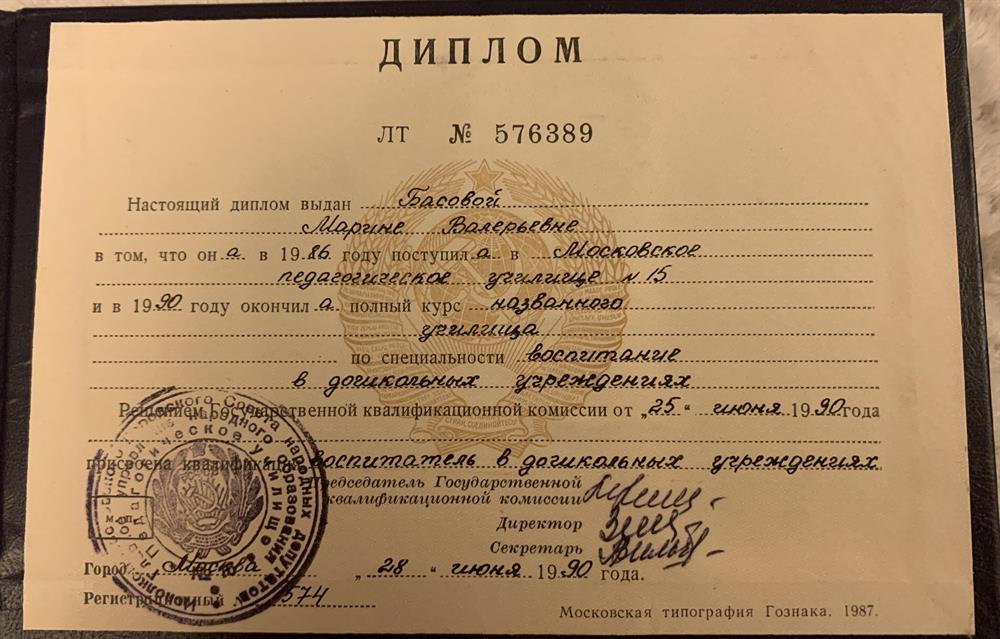 ДИПЛОМ
ЛТ № 576389
Настоящий диплом выдан Басовой
Марине Валерьевне
в том, что она в 1986 году поступила в Московское
педагогическое училище № 15
и в 1990 году окончила полный курс названного
училища
по специальности воспитание
в дошкольных учреждениях
Решением Государственной квалификационной комиссии от „25“ июня 1990 года
присвоена квалификация воспитатель в дошкольных учреждениях
Председатель Государственной
квалификационной комиссии
Директор
Секретарь
м. п.
Город Москва „28“ июня 1990 года.
Регистрационный 574
Московская типография Гознака. 1987.